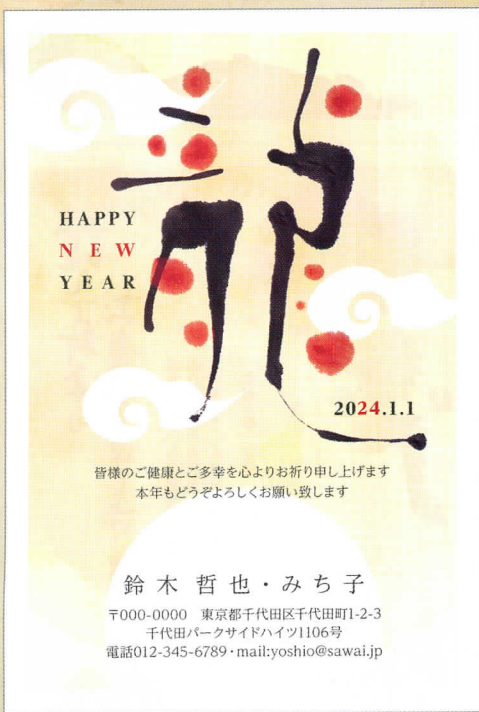 龍
HAPPY
NEW
YEAR
2024.1.1
皆様のご健康とご多幸を心よりお祈り申し上げます
本年もどうぞよろしくお願い致します
鈴木 哲也・みち子
〒000-0000 東京都千代田区千代田町1-2-3
千代田パークサイドハイツ1106号
電話012-345-6789・mail:yoshio@sawai.jp